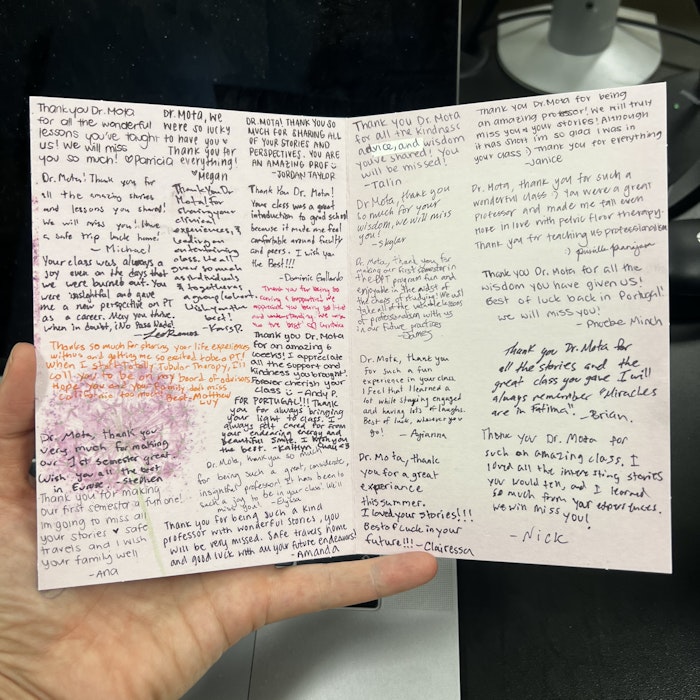 Thank you Dr. Mota
for all the wonderful
lessons you've taught to
us! We will miss
you so much! ♡ Patricia
DR. Mota, we
were so lucky
to have you ♥
Thank you for
everything!
♥ Megan
DR. MOTA! THANK YOU SO
MUCH FOR SHARING ALL
OF YOUR STORIES AND
PERSPECTIVES. YOU ARE
AN AMAZING PROF
-JORDAN TAYLOR
Dr. Mota! Thank you for
all the amazing stories
and lessons you shared!
We will miss you! Have
a safe trip back home!
- Michael
Thank you Dr.
Mota! for
sharing your
clinical
experiences, &
leading an
entertaining
class. We all
grew so much
as individuals
& together as
a young cohort.
Wish you all the
- Kari S.P.
Thank You Dr. Mota!
Your class was a great
introduction to grad school
because it made me feel
comfortable around faculty
and peers. I wish you
the Best!!!
- Dominic Gallardo
Your class was always a
joy even on the days that
we were burned out. You
were insightful and gave
me a new perspective on PT
as a career. May you thrive.
When in doubt, ¡No Pasa Nada!
Thank you for being so
caring & supportive! We
appreciate you being so kind
and understanding. We wish
you the best!
Thanks so much for sharing your life experiences
with us and getting me so excited to be a PT!
When I start Totally Tubular Therapy, I'll
call you to be on my board of advisors.
Hope you and your family don't miss
California too much! Best, Matthew
Luy
Thank you Dr. Mota
for an amazing 6
weeks! I appreciate
all the support and
kindness you brought.
Forever cherish your
class - Andy P.
FOR PORTUGAL!!! Thank
you for always bringing
your light to class. I
always felt cared for from
your endearing energy and
beautiful smile. I wish you
the best. - Kaitlyn
Dr. Mota, Thank you
very much for making
our 1st semester great.
Wish you all the best
in Europe. - Stephen
Dr. Mota, thank you so much
for being such a great, considerate,
insightful professor! It has been
such a joy to be in your class! We'll
miss you!
Thank you for making
our first semester a fun one!
Im going to miss all
your stories ♥ safe
travels and I wish
your family well
-Ana
Thank you for being such a kind
professor with wonderful stories, you
will be very missed. Safe travels home
and good luck with all your future endeavors!
-Amanda
Thank you Dr. Mota
for all the kindness
advice, and wisdom
you've shared! You
will be missed!
- Talin
Dr Mota, thank you
so much for your
wisdom, we will miss
you!
- Skyler
Dr. Mota, thank you for
making our first semester in
the DPT program fun and
enjoyable in the midst of
the chaos of studying! We will
take all the valuable lessons
of professionalism with us
in our future practices
- James
Dr. Mota, thank you
for such a fun
experience in your class.
I feel that I learned a
lot while staying engaged
and having lots of laughs.
Best of luck, wherever you
go!
- Arianna
Dr. Mota, thank
you for a great
experience
this summer.
I loved your stories!!!
Best of Luck in your
future!!! - Clairessa
Thank you Dr. Mota for being
an amazing professor! We will truly
miss you & your stories! Although
it was short im so glad I was in
your class :) Thank you for everything
- Janice
Dr. Mota, thank you for such a
wonderful class :) You were a great
professor and made me fall even
more in love with pelvic floor therapy.
Thank you for teaching us professionalism
:)
Thank you Dr. Mota for all the
wisdom you have given us!
Best of luck back in Portugal!
we will miss you!
- Phoebe Minch
Thank you Dr. Mota for
all the stories and the
great class you gave I will
always remember "Miracles
are in Fatima".
- Brian.
Thank you Dr. Mota for
such an amazing class. I
loved all the interesting stories
you would tell, and I learned
so much from your experiences.
We will miss you!
- Nick